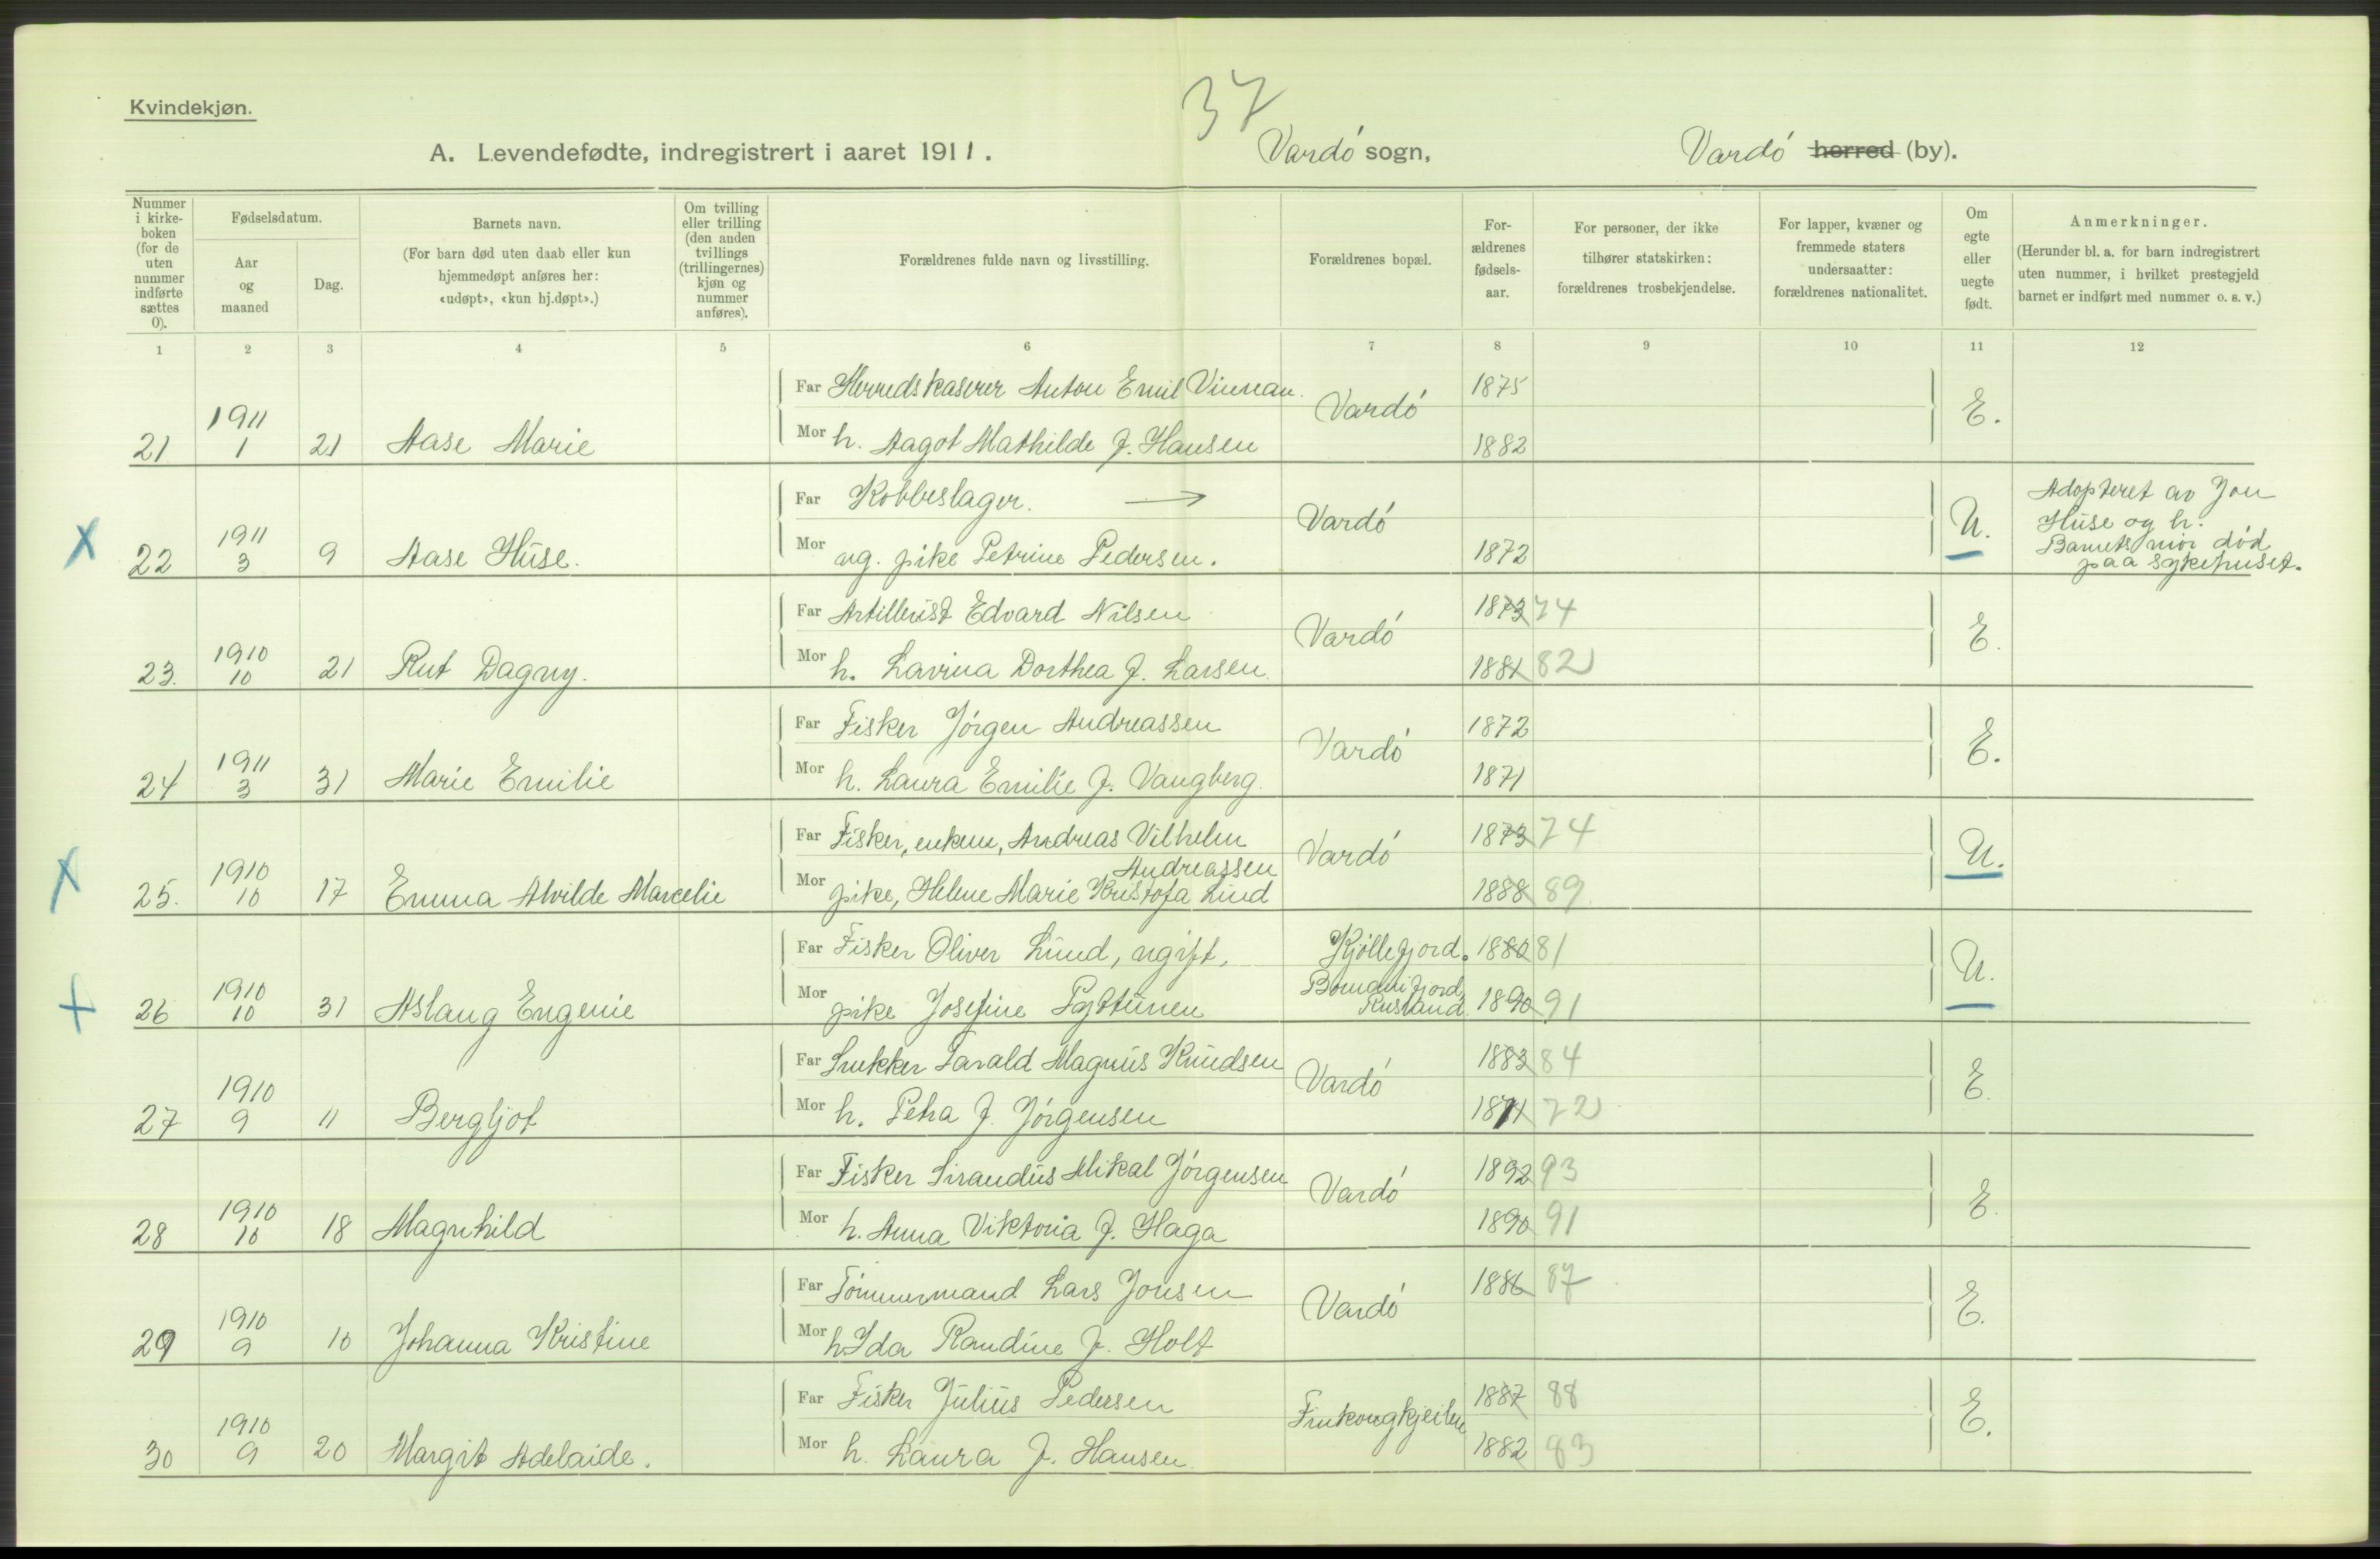 37
Kvindekjøn.
A. Levendefødte, indregistrert i aaret 1911. Vardó sogn, Vardó herred (by).
Nummer i kirkeboken (for de uten nummer indførte sættes 0).
Fødselsdatum.
Aar og maaned
Dag.
Barnets navn.
(For barn død uten daab eller kun hjemmedøpt anføres her: «udøpt», «kun hj.døpt».)
Om tvilling eller trilling (den anden tvillings (trillingernes) kjøn og nummer anføres).
Forældrenes fulde navn og livsstilling.
Forældrenes bopæl.
Forældrenes fødselsaar.
For personer, der ikke tilhører statskirken: forældrenes trosbekjendelse.
For lapper, kvæner og fremmede staters undersaatter: forældrenes nationalitet.
Om egte eller uegte født.
Anmerkninger.
(Herunder bl. a. for barn indregistrert uten nummer, i hvilket prestegjeld barnet er indført med nummer o. s. v.)
1 2 3 4 5 6 7 8 9 10 11 12
21 1911 1 21 Aase Marie
Far Herredskaserer Anton Emil Vinnan. Vardó 1875 E.
Mor h. Aagot Mathilde f. Hansen 1882
X 22 1911 3 9 Aase Huse.
Far Kobbeslager. → Vardó U.
Mor ug. pike Petrine Pedersen. 1872
Adopteret av Jon
Huse og h.
Barnets mor død
paa sykehuset.
23. 1910 10 21 Rut Dagny.
Far Artillerist Edvard Nilsen Vardó 1873 74 E.
Mor h. Lavina Dorthea f. Larsen 1881 82
24 1911 3 31 Marie Emilie
Far Fisker Jörgen Andreassen Vardó 1872 E.
Mor h. Laura Emilie f. Vangberg. 1871
X 25. 1910 10 17 Emma Alvilde Marcelie
Far Fisker, enkem, Andreas Vilhelm Andreassen Vardó 1873 74 U.
Mor pike, Helene Marie Kristofa Lind 1888 89
+ 26 1910 10 31 Aslaug Eugenie
Far Fisker Oliver Lund, ugift, Kjöllefjord. 1880 81 U.
Mor pike Josefine Rusland 1890 91
27 1910 9 11 Bergljot
Far Snekker Harald Magnus Knudsen Vardó 1883 84 E.
Mor h. Petra f. Jörgensen 1871 72
28 1910 10 18 Magnhild
Far Fisker Sirandus Mikal Jörgensen Vardó 1892 93 E.
Mor h. Anna Viktoria f. Haga 1890 91
29 1910 9 10 Johanna Kristine
Far Tömmermand Lars Jonsen Vardó 1886 87 E.
Mor h. Ida Randine f. Holt
30 1910 9 20 Margit Adelaide.
Far Fisker Julius Pedersen Finkongkjeilen 1887 88 E.
Mor h. Laura f. Hansen 1882 83